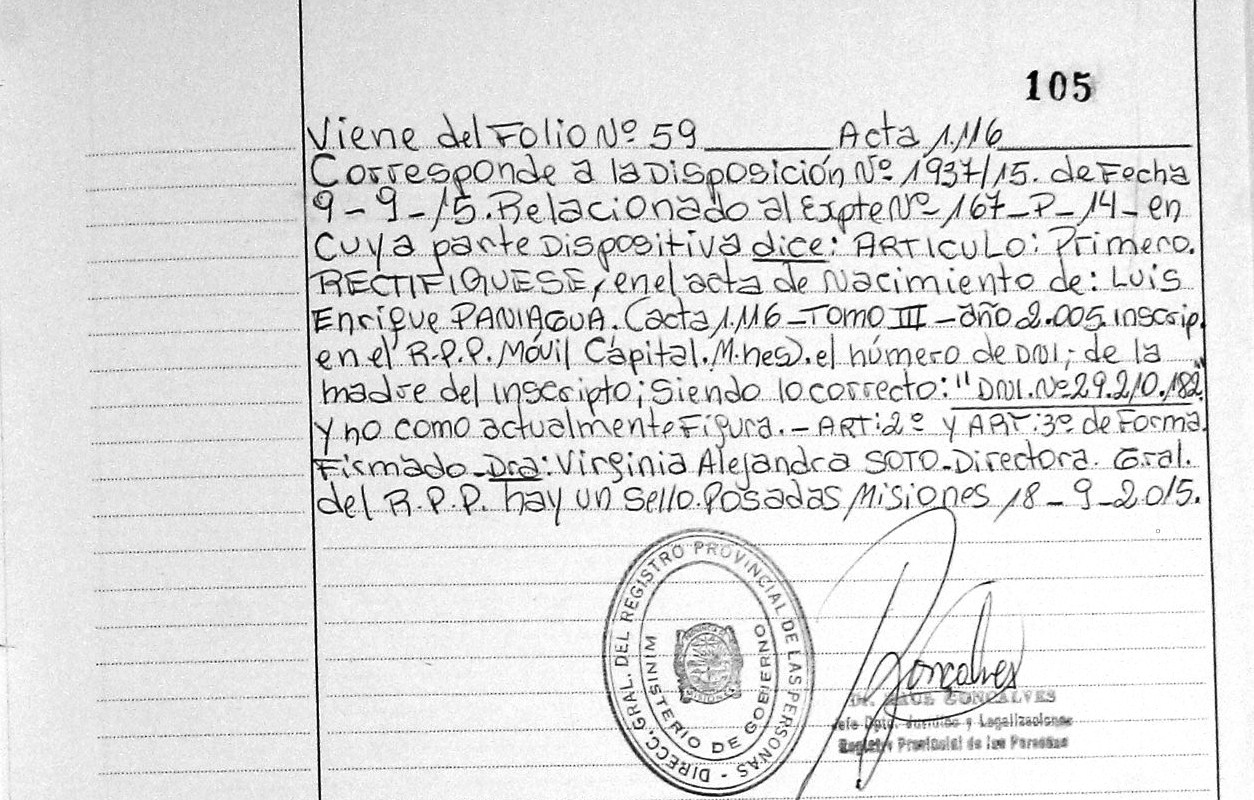 105
Viene del Folio Nº 59 Acta 1.116
Corresponde a la Disposición Nº 1937/15. de Fecha
9-9-15. Relacionado al Expte Nº 167-P-14- en
cuya parte Dispositiva dice: ARTICULO: Primero.
RECTIFIQUESE, en el acta de Nacimiento de: Luis
Enrique PANIAGUA. (acta 1.116 - TOMO III - año 2.005. inscrip.
en el R.P.P. Móvil Cápital. M.nes). el número de DNI; de la
madre del inscripto; Siendo lo correcto: "DNI. Nº 29.210.182"
y no como actualmente Figura. - ART: 2º y ART: 3º de Forma.
Firmado - Dra: Virginia Alejandra SOTO - Directora. Gral.
del R.P.P. hay un sello. Posadas Misiones 18-9-2015.
DIRECC. GRAL. DEL REGISTRO PROVINCIAL DE LAS PERSONAS -
MINISTERIO DE GOBIERNO
MISIONES
Goncalves
Dr. RAUL GONCALVES
Jefe Dpto. Jurídico y Legalizaciones
Registro Provincial de las Personas